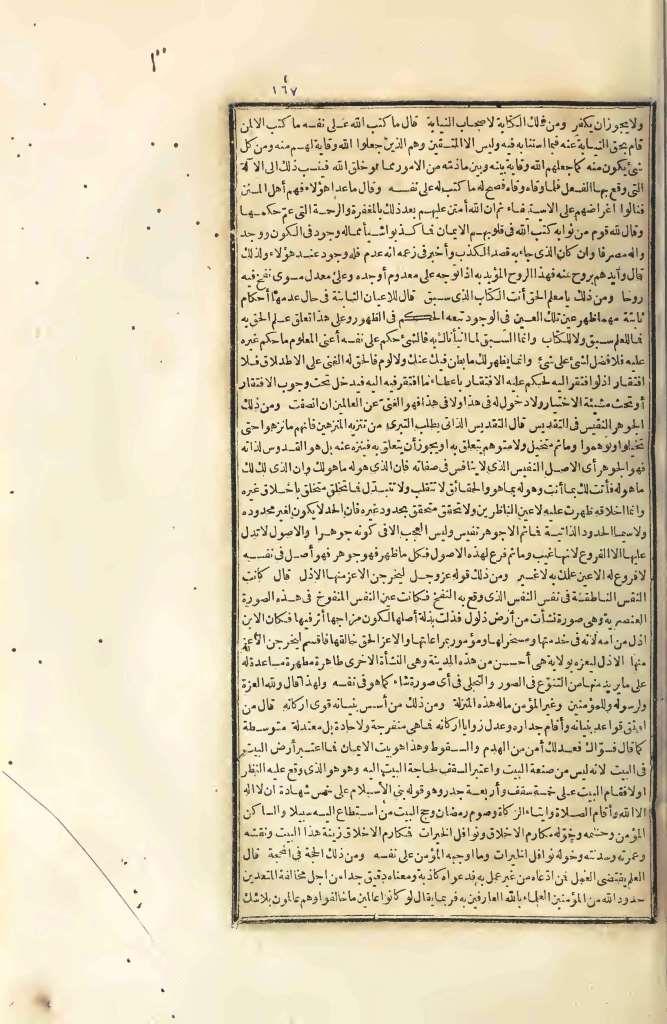 ١٦٧
ولا يجوز ان يكفر ومن ذلك الكتابة لاصحاب النيابة قال ما كتب الله على نفسه ما كتب الا لمن
قام بحق النيابة عنه فيما استنابه فيه وليس الا المتقين وهم الذين جعلوا الله وقاية لهم منه ومن كل
شئ يكون منه كما جعلهم الله وقاية بينه وبين ما ذمته من الامور مما هو خلق الله فينسب ذلك الى الآلة
التى وقع بها الفعل فلما وقاه وقاه فصح له ما كتب له على نفسه وقال ما عدا هؤلاء فهم أهل المنن
فنالوا اغراضهم على الاستيفاء ثم ان الله امتن عليهم بعد ذلك بالمغفرة والرحمة التى عم حكمها
وقال لله قوم من نوابه كتب الله فى قلوبهم الايمان فما كذبوا شيأ مما له وجود فى الكون ووجد
واله مصرفا وان كان الذى جاء به قصد الكذب وأخبر فى زعمه انه عدم فله وجود عند هؤلاء ولذلك
قال وأيدهم بروح منه فهذا الروح المؤيد به اذا توجه على معدوم أوجده وعلى معدل مسوى نفخ فيه
روحا ومن ذلك يا معلم الحق أنت الكتاب الذى سبق قال للاعيان الثابتة فى حال عدمها أحكام
ثابتة مهما ظهر عين تلك العين فى الوجود تبعه الحكم فى الظهور وعلى هذا تعلق علم الحق به
فما للعلم سبق ولا للكتاب وانما السبق لما انبأناك به فالشئ حكم على نفسه أعنى المعلوم ما حكم غيره
عليه فلا فضل لشئ على شئ وانما يظهر لك ما بطن فيك عنك ولا لوم فالحق له الغنى على الاطلاق فلا
افتقار اذ لو افتقر اليه لحكم عليه الافتقار باعطاء ما افتقر فيه اليه فيدخل تحت وجوب الافتقار
أو تحت مشيئة الاختيار ولا دخول له فى هذا ولا فى هذا فهو الغنى عن العالمين ان انصفت ومن ذلك
الجوهر النفيس فى التقديس قال التقديس الذاتى يطلب التبرى من تنزيه المنزهين فانهم ما نزهوا حتى
تخيلوا وتوهموا وما ثم متخيل ولا متوهم يتعلق به او يجوز أن يتعلق به فينزه عنه بل هو القدوس لذاته
فهو الجوهر أى الاصل النفيس الذى لا ينافس فى صفاته فان الذى هو له ما هو لك وان الذى لك لك
ما هو له فأنت لك بما أنت وهو له بما هو والحقائق لا تنقلب ولا تتبدل فما تخلق متخلق باخلاق غيره
وانما اخلاقه ظهرت عليه لاعين الناظرين ولا تحقق متحقق بحدود غيره فان الحد لا يكون لغير محدوده
ولا سيما الحدود الذاتية فما ثم الا جوهر نفيس وليس العجب الا فى كونه جوهرا والاصول لا تدل
عليها الا الفروع لانها غيب وما ثم فرع لهذه الاصول فكل ما ظهر فهو جوهر فهو أصل فى نفسه
لا فروع له الا عين علمك به لا غير ومن ذلك قوله عز وجل ليخرجن الاعز منها الاذل قال كانت
النفس الناطقة فى نفس النفس الذى وقع به النفخ فكانت عين النفس المنفوخ فى هذه الصورة
العنصرية وهى صورة نشأت من أرض ذلول فذلت بذلة أصلها لكون مزاجها أثر فيها فكان الابن
اذل من امه لانه فى خدمتها ومسخر لها ومأمور بمراعاتها والاعز الحق خالقها فاقسم ليخرجن الأعز
منها الاذل ليعزه بولاية هى أحسن من هذه المدينة وهى النشأة الاخرى طاهرة مطهرة مساعدة له
على ما يريد منها من التنوع فى الصور والتجلى فى أى صورة شاء كما هو فى نفسه ولهذا قال ولله العزة
ولرسوله وللمؤمنين وغير المؤمن ماله هذه المنزلة ومن ذلك من أسس بنيانه قوى اركانه قال من
اتقن قواعد بنيانه وأقام جداره وعدل زوايا اركانه فما هى منفرجة ولا حادة بل معتدلة متوسطة
كما قال فسواك فعدلك أمن من الهدم والسقوط وهذا هو بيت الايمان فما اعتبر أرض البيت
فى البيت لانه ليس من صنعة البيت واعتبر السقف لحاجة البيت اليه وهو هو الذى وقع عليه النظر
اولا فقام البيت على خمسة سقف وأربعة جدر وهو قوله بنى الأسلام على خمس شهادة ان لا اله
الا الله وأقام الصلاة وايتاء الزكاة وصوم رمضان وحج البيت من استطاع اليه سبيلا والساكن
المؤمن وحشمه وخوله مكارم الاخلاق ونوافل الخيرات فمكارم الاخلاق زينة هذا البيت ونقشه
وعمرته وسدنته وخوله نوافل الخيرات وما اوجبه المؤمن على نفسه ومن ذلك الحجة فى المحجة قال
العلم يقتضى العمل فمن ادعاه من غير عمل به فدعواه كاذبة ومعناه دقيق جدا من اجل مخالفة المتعدين
حدود الله من المؤمنين العلماء بالله العارفين به فربما يقال لو كانوا عالمين ما خالفوا وهم عالمون بلا شك